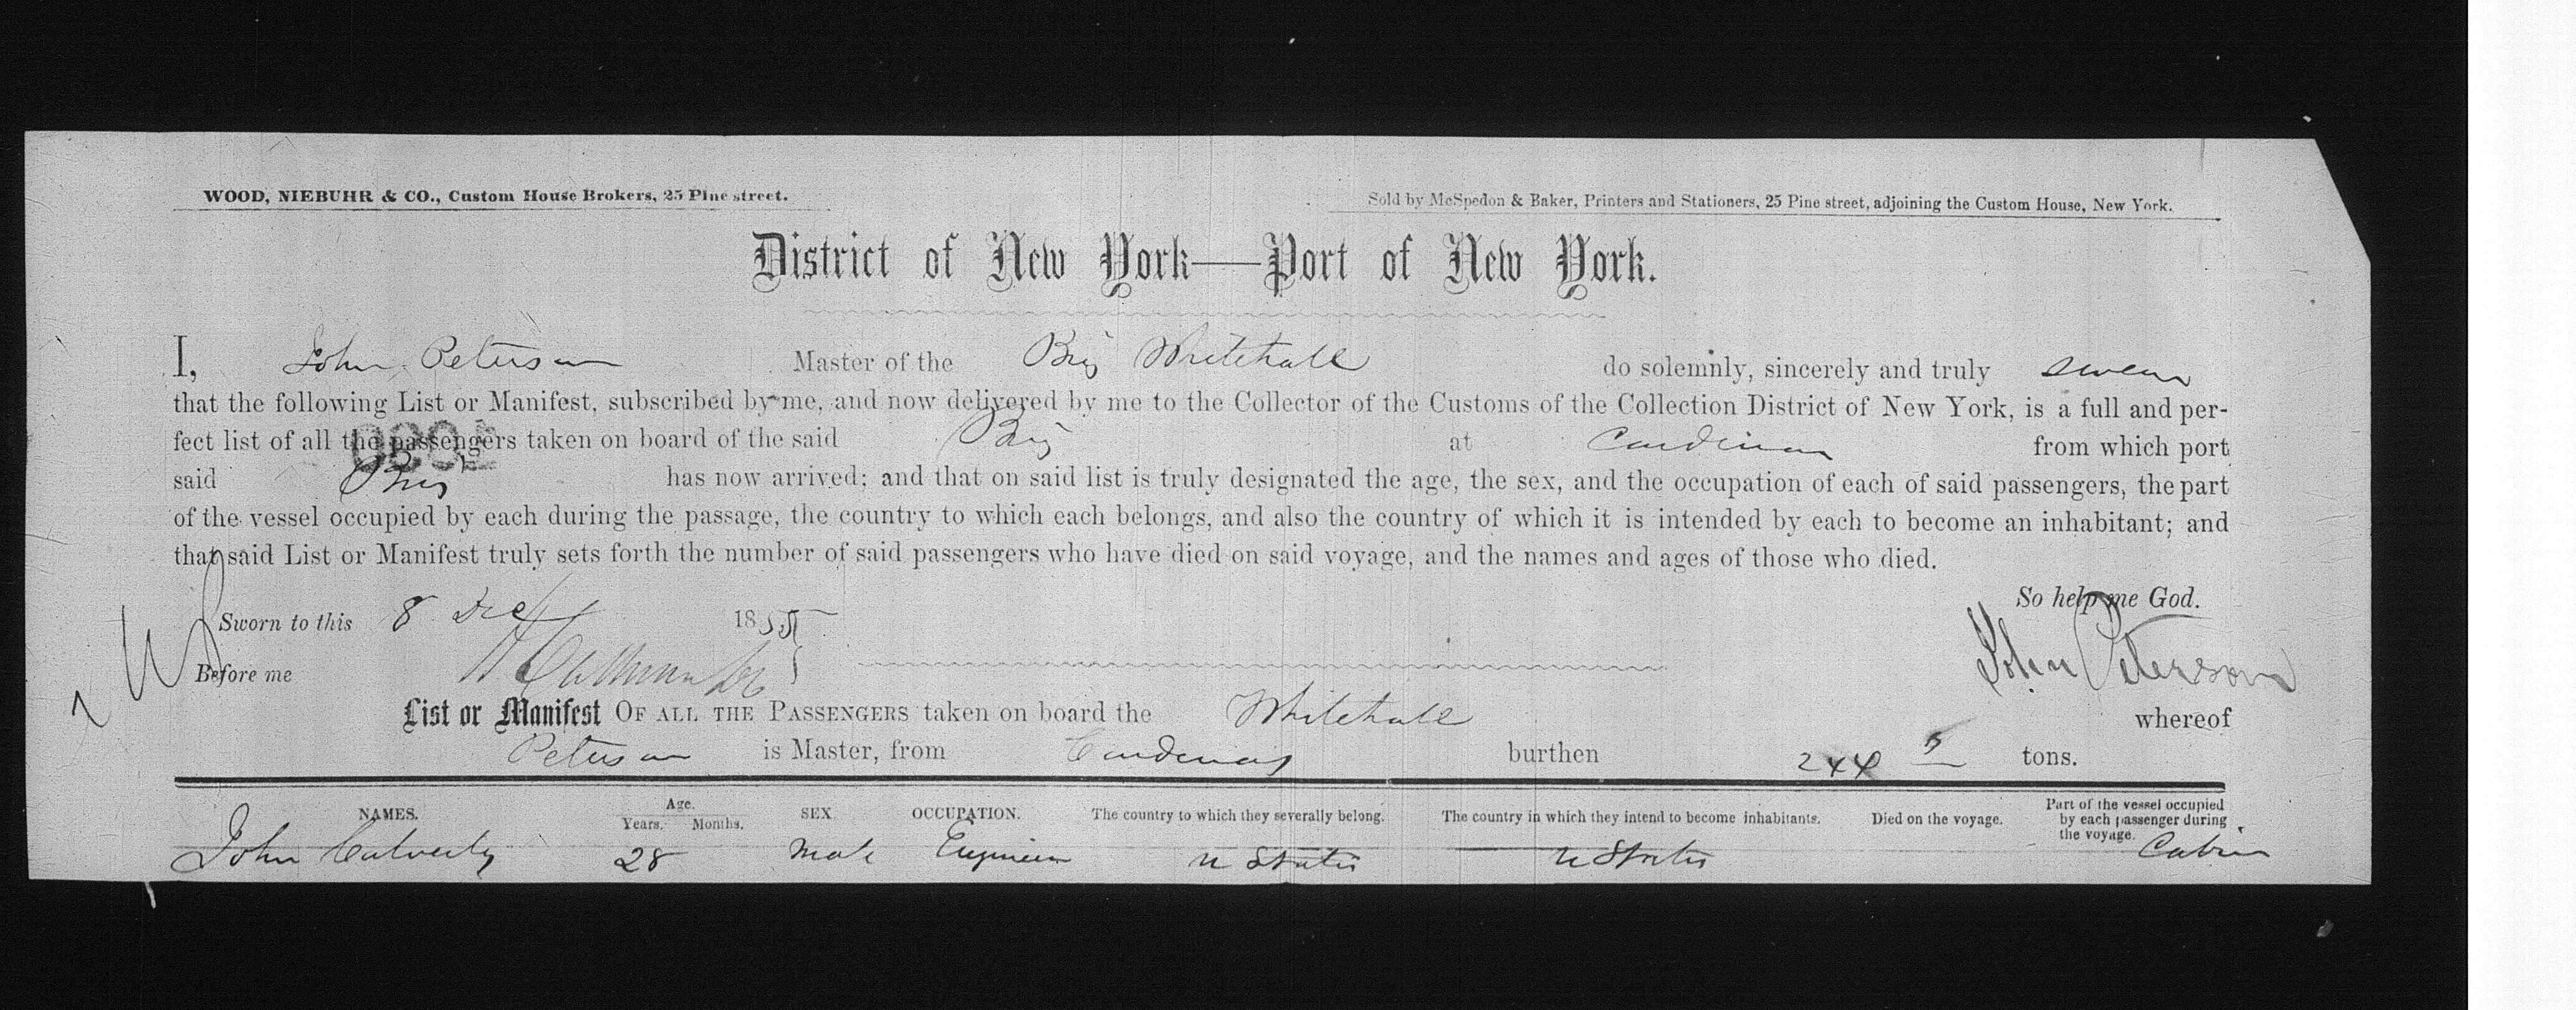 WOOD, NIEBUHR & CO., Custom House Brokers, 25 Pine street.
Sold by McSpedon & Baker, Printers and Stationers, 25 Pine street, adjoining the Custom House, New York.
District of New York—Port of New York.
I, John Peterson Master of the Brig Whitehall do solemnly, sincerely and truly swear
that the following List or Manifest, subscribed by me, and now delivered by me to the Collector of the Customs of the Collection District of New York, is a full and per-
fect list of all the passengers taken on board of the said Brig at Cardenas from which port
said Brig has now arrived; and that on said list is truly designated the age, the sex, and the occupation of each of said passengers, the part
of the vessel occupied by each during the passage, the country to which each belongs, and also the country of which it is intended by each to become an inhabitant; and
that said List or Manifest truly sets forth the number of said passengers who have died on said voyage, and the names and ages of those who died.
So help me God.
Sworn to this 8 Dec 1855
John Peterson
Before me
List or Manifest OF ALL THE PASSENGERS taken on board the Whitehall whereof
Peterson is Master, from Cardenas burthen 244 tons.
NAMES. Age. Years. Months. SEX OCCUPATION. The country to which they severally belong. The country in which they intend to become inhabitants. Died on the voyage. Part of the vessel occupied by each passenger during the voyage.
John 28 Male Engineer U States U States Cabin